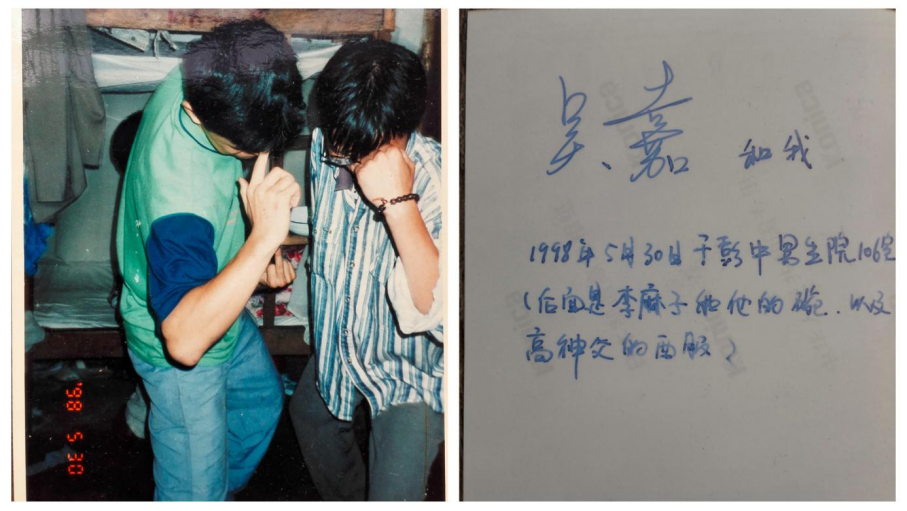 '98 5 30
吴嘉 和我
1998年5月30日于彭中男生院106室
(后面是李麻子和他的碗.以及
高神父的西服)